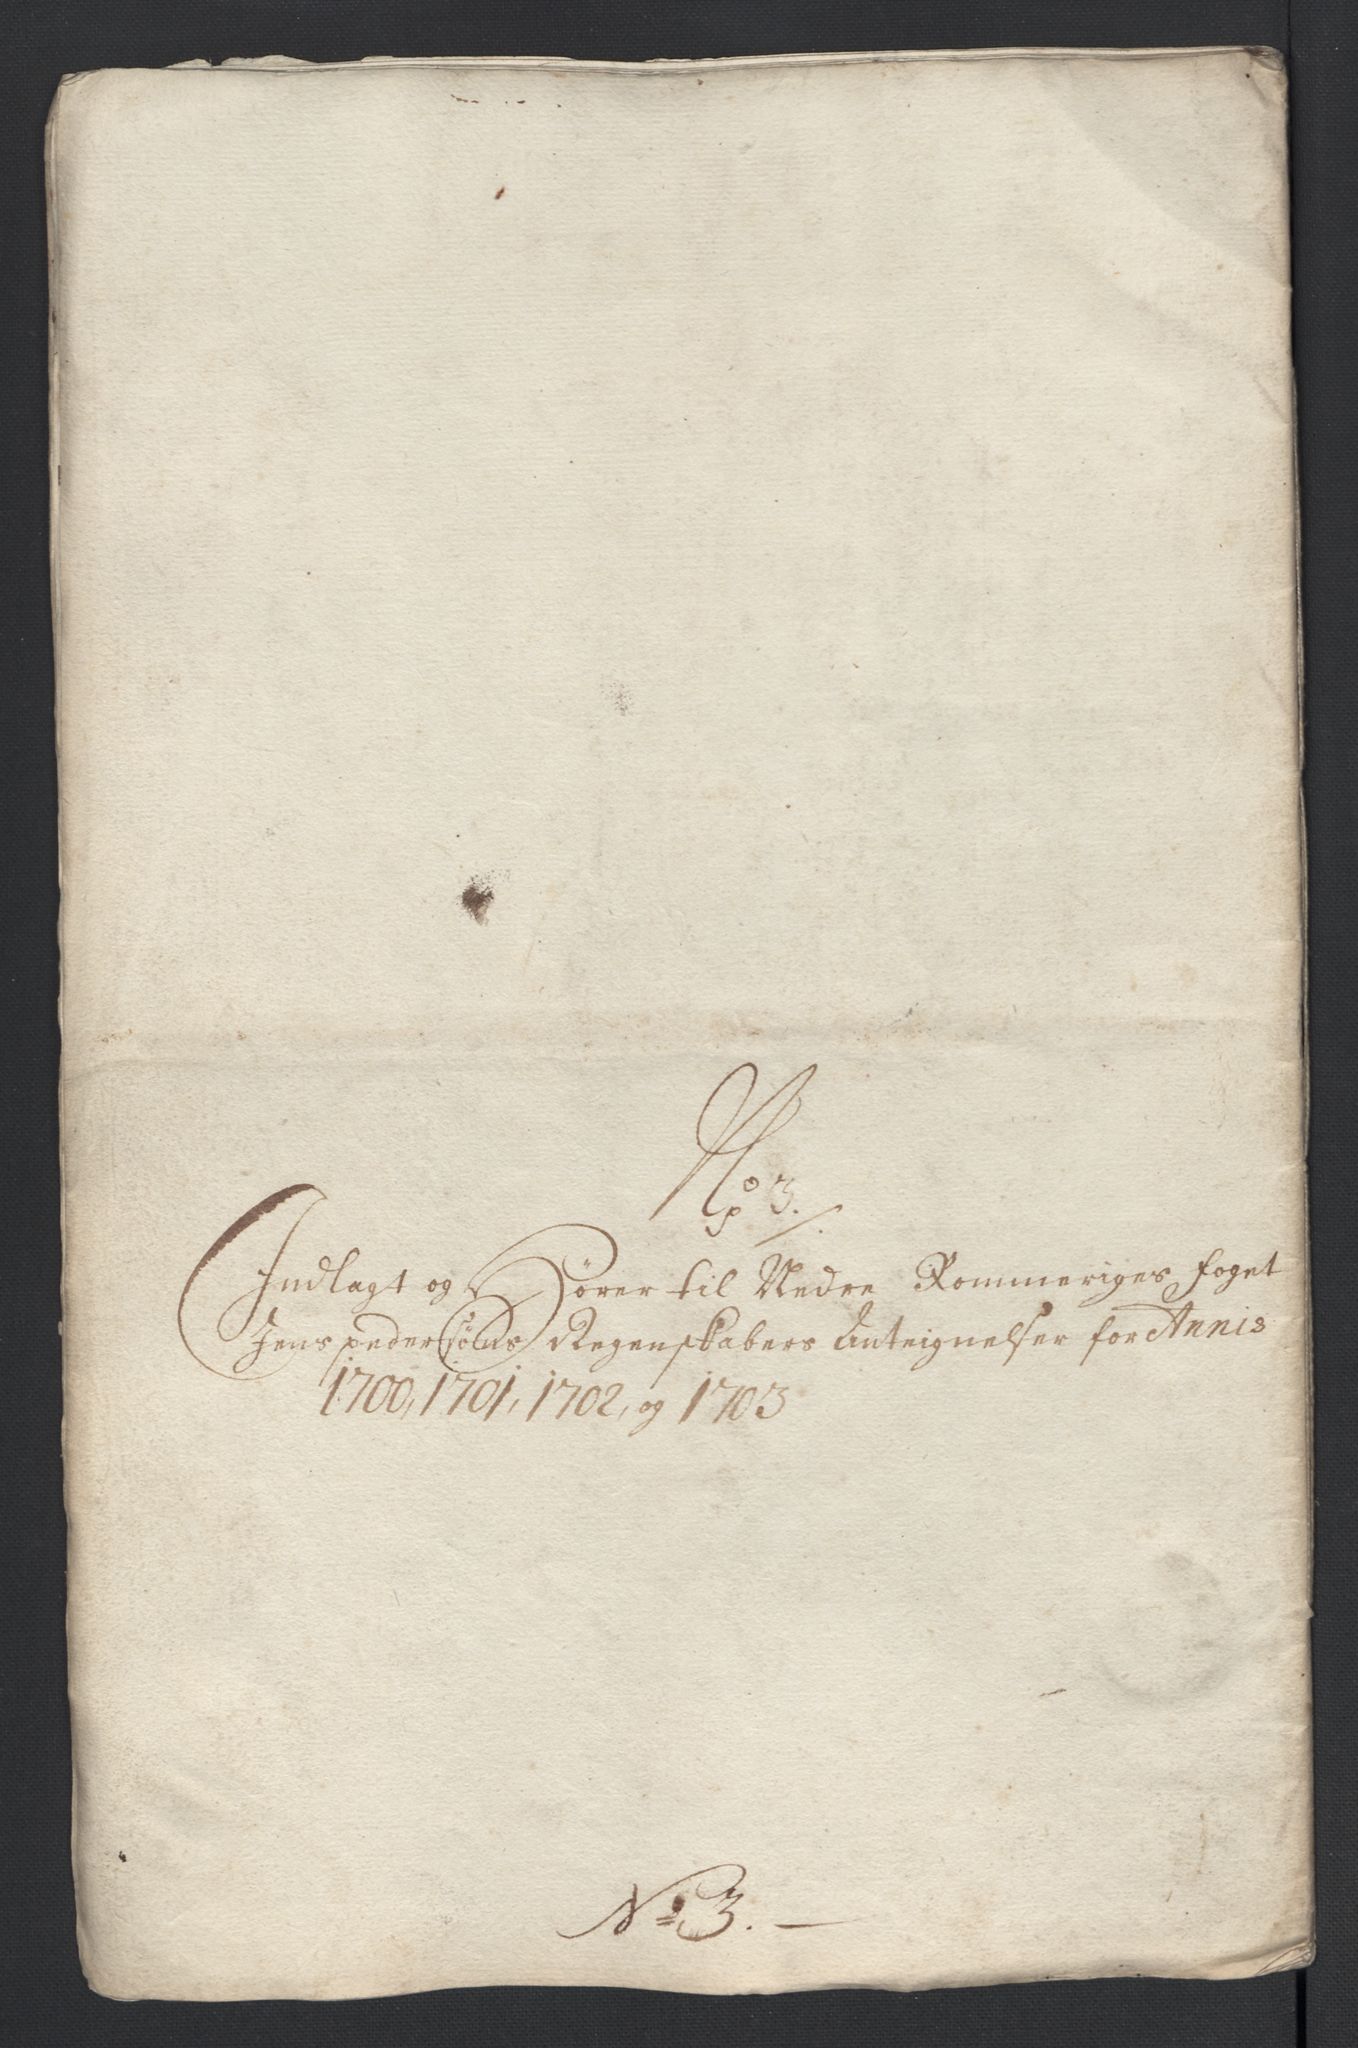 No 3.
Indlagt og Hører til Nedre Rommeriges foget
Jens pedersøns Regenskabers Anteignelser for Annis
1700, 1701, 1702, og 1703
No 3.